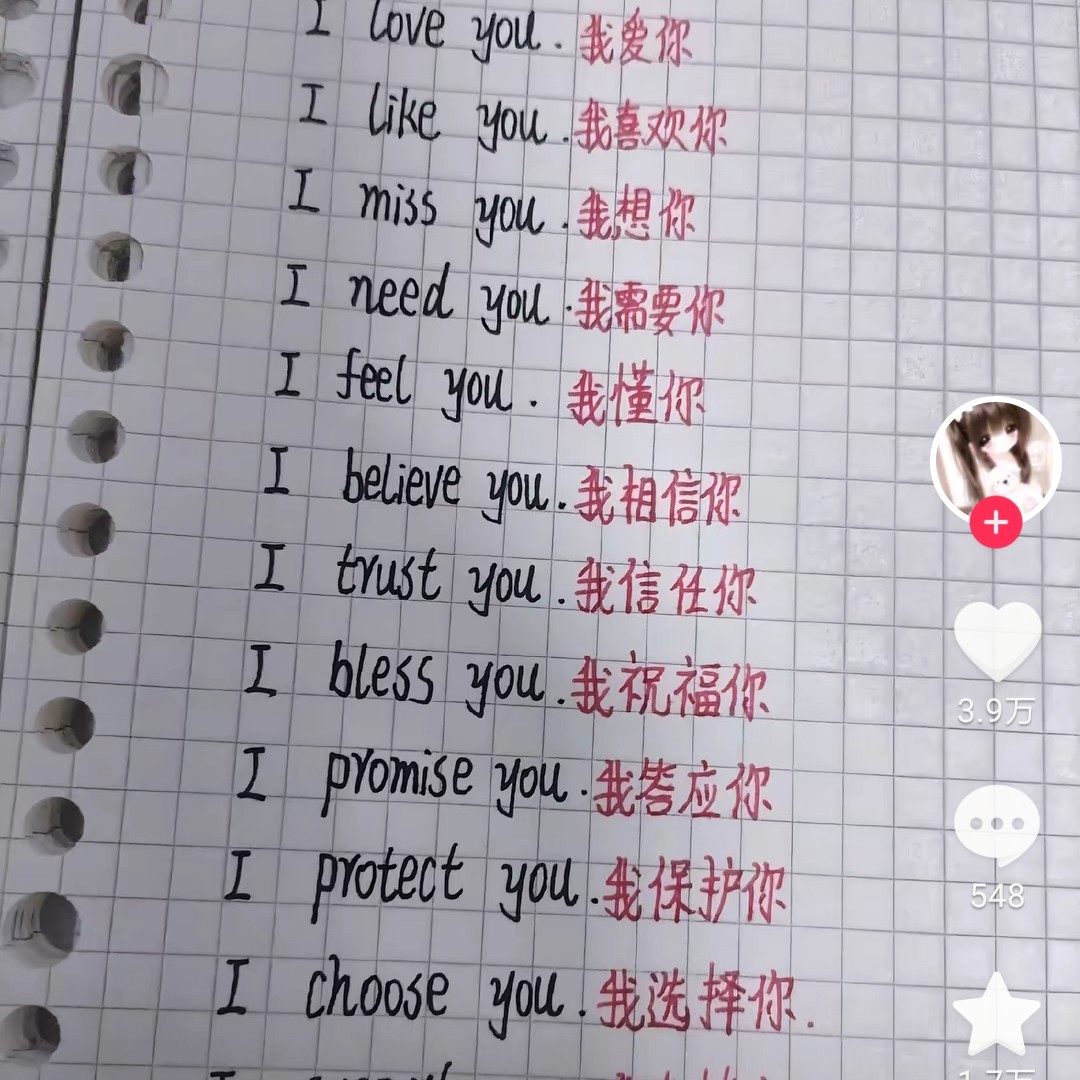 I love you. 我爱你
I like you. 我喜欢你
I miss you. 我想你
I need you. 我需要你
I feel you. 我懂你
I believe you. 我相信你
I trust you. 我信任你
I bless you. 我祝福你
I promise you. 我答应你
I protect you. 我保护你
I choose you. 我选择你.
3.9万
548
1.7万